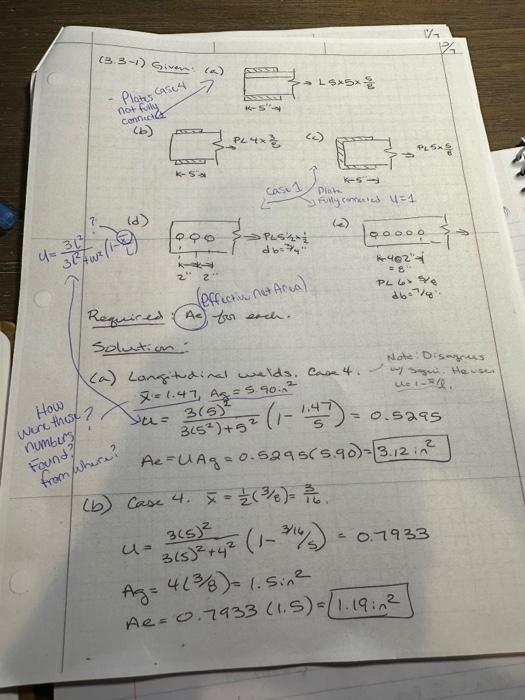 1/7
2/7
(3.3-1) Given: (a)
L5x5x5/8
K-5"→
- Plates case 4
not fully
connected
(b)
PL 4x3/8
K-5"→
(c)
PL5x5/8
K-5"→
case 1 Plate
Fully connected U=1
?
U = 3l²/(3l²+w²) (1-x̄/l)
(d)
PL5½x½
db=3/4"
2" 2"
(e)
K-4@2"→
= 8"
PL 6x5/8
db=7/8"
(effective net Area)
Required: Ae for each.
Solution:
(a) Longitudinal welds. Case 4.
Note: Disagrees
w/ Segui. He uses
U=1-x̄/l.
x̄=1.47, Ag=5.90in²
How
were these ?
numbers
Found?
from where?
U= 3(5)²/(3(5²)+5²) (1-1.47/5) = 0.5295
Ae=UAg = 0.5295(5.90)= 3.12in²
(b) Case 4. x̄ = ½(3/8)= 3/16.
U= 3(5)²/(3(5)²+4²) (1-3/16/5) = 0.7933
Ag= 4(3/8)= 1.5in²
Ae= 0.7933 (1.5) = 1.19in²